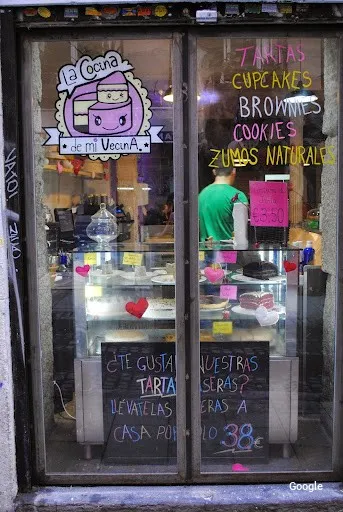 La Cocina
de mi Vecina.
TARTAS
CUPCAKES
BROWNIES
COOKIES
ZUMOS NATURALES
€3.50
¿TE GUSTA NUESTRAS
TARTA SERAS?
LLÉVATELAS ERAS A
CASA POR LO 38€
Google